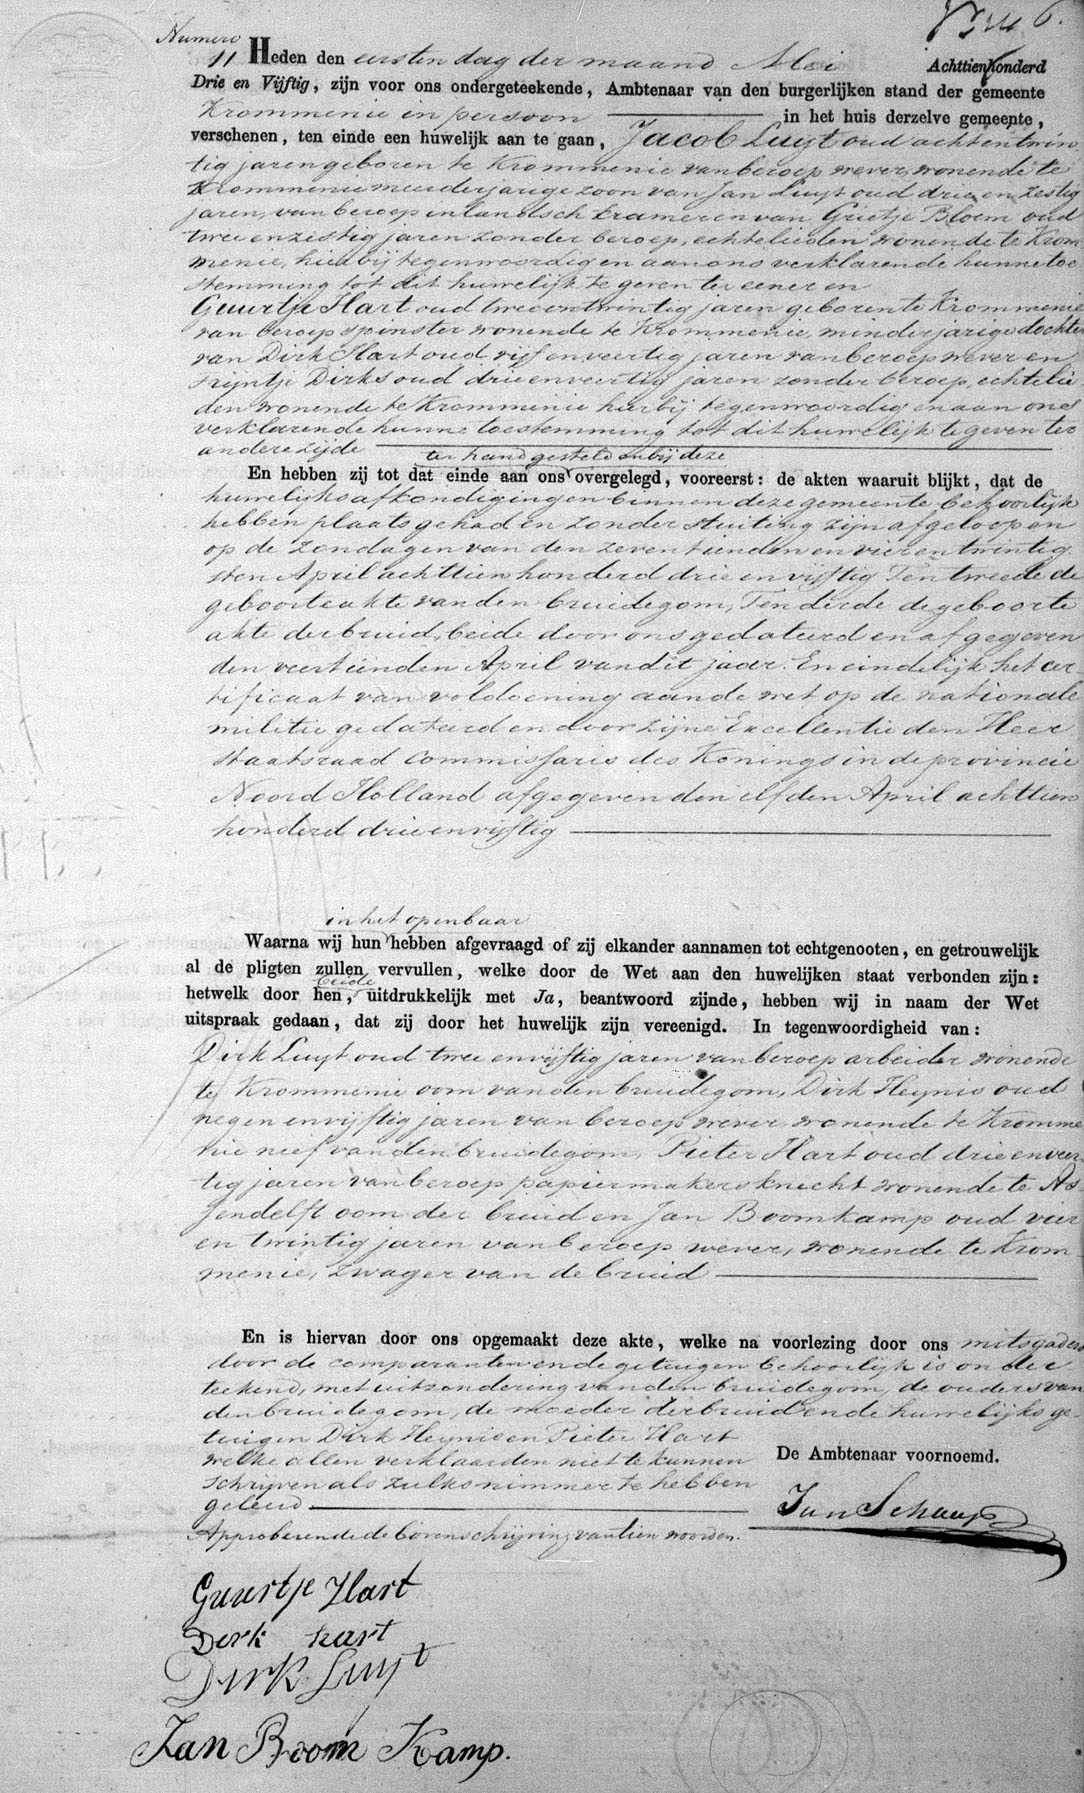 Numero
11 Heden den eersten dag der maand Mei Achttienhonderd
Drie en Vijftig, zijn voor ons ondergeteekende, Ambtenaar van den burgerlijken stand der gemeente
Krommenie in persoon in het huis derzelve gemeente,
verschenen, ten einde een huwelijk aan te gaan, Jacob Luijt oud achtentwin
tig jaren geboren te Krommenie van beroep wever, wonende te
Krommenie meerderjarige zoon van Jan Luijt oud drie en zestig
jaren, van beroep inlandsch kramer en van Grietje Bloem oud
twee en zestig jaren zonder beroep, echtelieden wonende te Krom
menie, hierbij tegenwoordig en aan ons verklarende hunne toe
stemming tot dit huwelijk te geven ter eener en
Guurtje Hart oud twee en twintig jaren geboren te Krommenie
van beroep spinster wonende te Krommenie, minderjarige dochter
van Dirk Hart oud vijf en veertig jaren van beroep wever en
Trijntje Dirks oud drie en veertig jaren zonder beroep, echtelie
den wonende te Krommenie hierbij tegenwoordig en aan ons
verklarende hunne toestemming tot dit huwelijk te geven ter
andere zijde
ter hand gesteld en bij deze
En hebben zij tot dat einde aan ons overgelegd, vooreerst: de akten waaruit blijkt, dat de
huwelijks afkondigingen binnen deze gemeente behoorlijk
hebben plaats gehad en zonder stuiting zijn afgeloopen
op de zondagen van den zeventienden en vier en twintig
sten April achttien honderd drie en vijftig Ten tweede de
geboorteakte van den bruidegom, Ten derde de geboorte
akte der bruid, beide door ons gedateerd en afgegeven
den veertienden April van dit jaar. En eindelijk het cer
tificaat van voldoening aan de wet op de nationale
militie gedateerd en door zijne Excellentie den Heer
Staatsraad Commissaris des Konings in de provincie
Noord Holland afgegeven den elfden April achttien
honderd drie en vijftig
in het openbaar
Waarna wij hun hebben afgevraagd of zij elkander aannamen tot echtgenooten, en getrouwelijk
al de pligten zullen vervullen, welke door de Wet aan den huwelijken staat verbonden zijn:
beide
hetwelk door hen, uitdrukkelijk met Ja, beantwoord zijnde, hebben wij in naam der Wet
uitspraak gedaan, dat zij door het huwelijk zijn vereenigd. In tegenwoordigheid van:
Dirk Luijt oud twee en vijftig jaren van beroep arbeider wonende
te Krommenie oom van den bruidegom, Dirk Heynis oud
negen en vijftig jaren van beroep wever wonende te Kromme
nie neef van den bruidegom, Pieter Hart oud drie en veer
tig jaren van beroep papiermakersknecht wonende te As
sendelft oom der bruid en Jan Boomkamp oud vier
en twintig jaren van beroep wever, wonende te Krom
menie, zwager van de bruid
En is hiervan door ons opgemaakt deze akte, welke na voorlezing door ons mitsgaders
door de comparanten en de getuigen behoorlijk is onder
teekend, met uitzondering van den bruidegom, de ouders van
den bruidegom, de moeder der bruid en de huwelijks ge-
tuigen Dirk Heynis en Pieter Hart
welke allen verklaarden niet te kunnen
schrijven als zulks nimmer te hebben
geleerd
De Ambtenaar voornoemd.
Jan Schaap
Approberende de bovenschrijving van tien woorden.
Guurtje Hart
Derk hart
Dirk Luijt
Jan Boom Kamp.